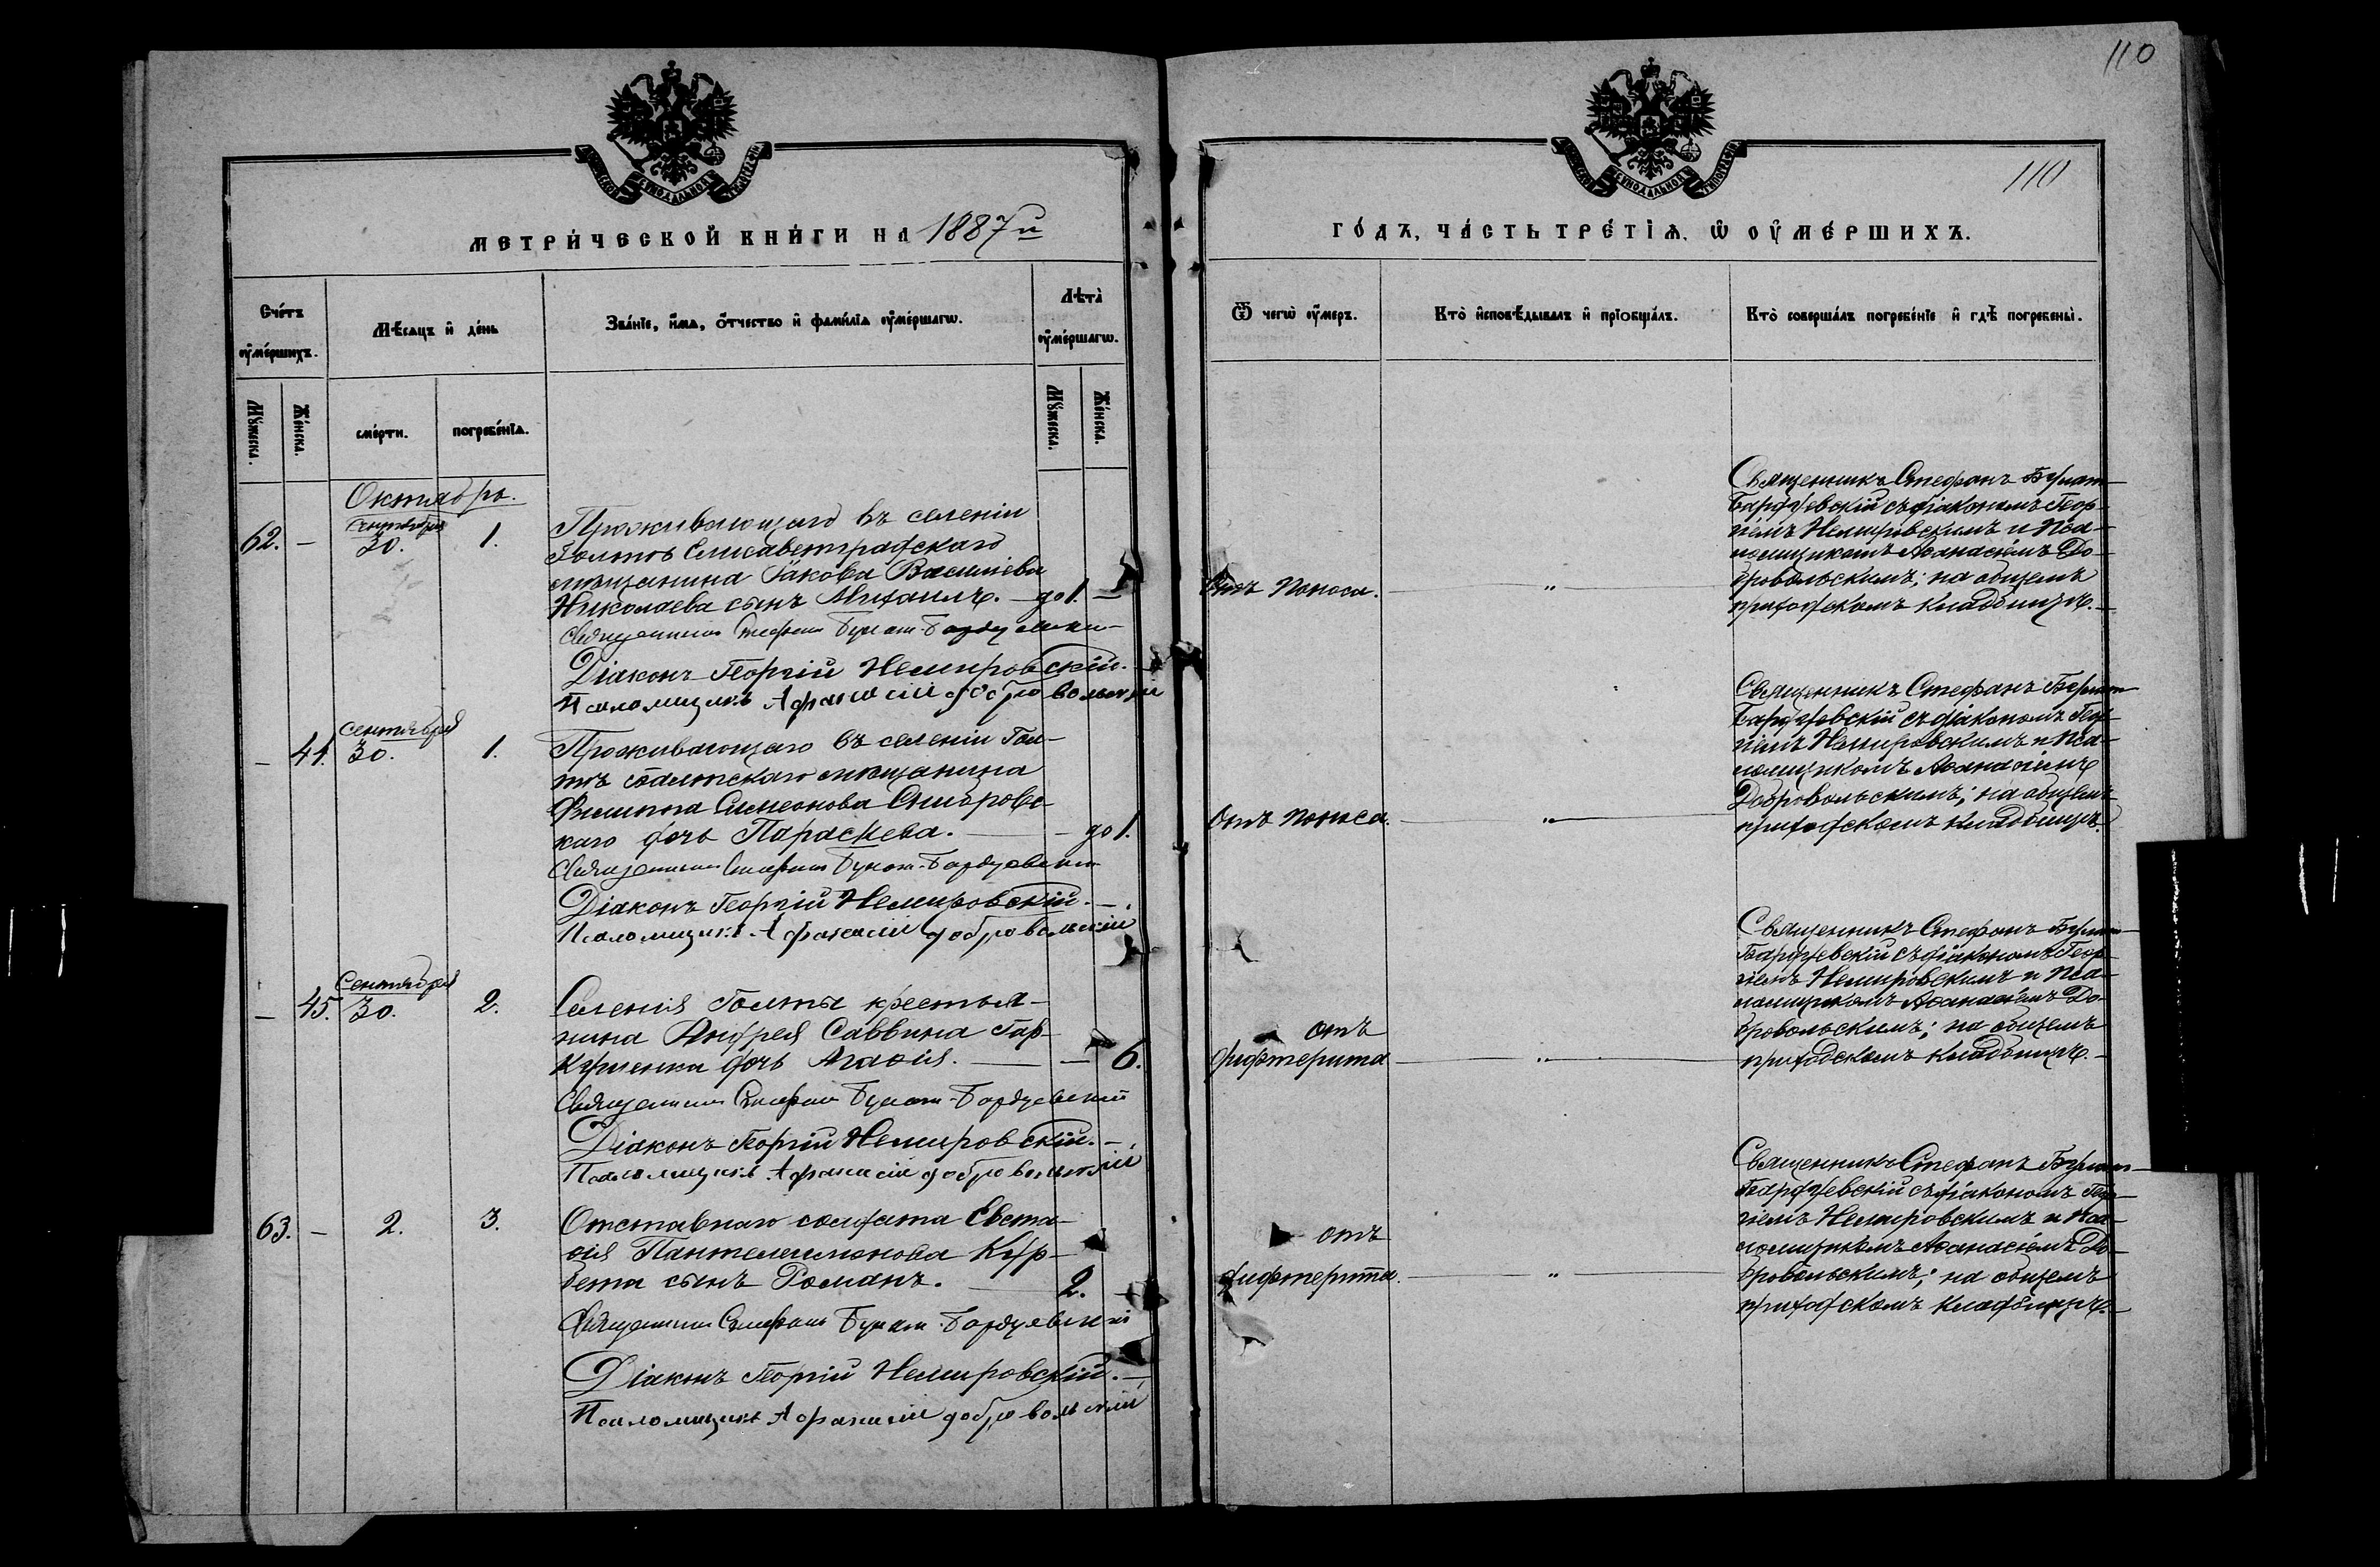 110
110
МЕТРИ́ЧЕСКОЙ КНИ́ГИ НА 1887й
ГО́ДЪ, ЧА́СТЬ ТРЕ́ТІѦ, Ѡ ОУ҆МЕ́РШИХЪ.
Сче́тъ оу҆ме́ршихъ.
Мѣ́сяцъ и҆ де́нь
Зва́нїе, и҆́мя, о҆́тчество и҆ фами́лїя оу҆ме́ршагѡ.
Лѣта̀ оу҆ме́ршагѡ.
Ѿ чегѡ̀ оу҆́меръ.
Кто̀ и҆сповѣ́дывалъ и҆ прїобща́лъ.
Кто̀ соверша́лъ погребе́нїе и҆ гдѣ̀ погребены̀.
Мꙋ́жеска.
Же́нска.
сме́рти.
погребе́нїя.
Мꙋ́жеска.
Же́нска.
Октябрь.
62. — Сентября 30. 1.
Проживающаго въ селеніи
Голтѣ Елисаветградскаго
мѣщанина Іакова Василіева
Николаева сынъ Михаилъ. — до 1. —
Священникъ Стефанъ Булат-Бардуевскій
Діаконъ Георгій Немировскій.
Псаломщикъ Афанасій Добровольскій
Отъ поноса. — „ —
Священникъ Стефанъ Булат-
Бардуевскій съ діакономъ Геор-
гіемъ Немировскимъ и Пса-
ломщикомъ Аѳанасіемъ До-
бровольскимъ; на общемъ
приходскомъ кладбищѣ. —
— 44. Сентября 30. 1.
Проживающаго въ селеніи Гол-
тѣ мѣщанина
Филиппа Симеонова
каго дочь Параскева. — до 1.
Священникъ Стефанъ Булат-Бардуевскій
Діаконъ Георгій Немировскій. —
Псаломщикъ Афанасій Добровольскій
Отъ поноса. — „ —
Священникъ Стефанъ Булат-
Бардуевскій съ діакономъ Геор-
гіемъ Немировскимъ и Пса-
ломщикомъ Аѳанасіемъ
Добровольскимъ; на общемъ
приходскомъ кладбищѣ.
— 45. Сентября 30. 2.
Селенія Голты крестья-
нина Андрея Саввина Гар-
дочь Агаѳія. — — 6.
Священникъ Стефанъ Булат-Бардуевскій
Діаконъ Георгій Немировскій. —
Псаломщикъ Афанасій Добровольскій
отъ
дифтерита — „ —
Священникъ Стефанъ Булат-
Бардуевскій съ діакономъ Геор-
гіемъ Немировскимъ и Пса-
ломщикомъ Аѳанасіемъ До-
бровольскимъ; на общемъ
приходскомъ кладбищѣ. —
63. — 2. 3.
Отставнаго солдата Евста-
ѳія Пантелеимонова Кур-
бета сынъ Романъ. — 2. —
Священникъ Стефанъ Булат-Бардуевскій
Діаконъ Георгій Немировскій. —
Псаломщикъ Афанасій Добровольскій
отъ
дифтерита. — „ —
Священникъ Стефанъ Булат-
Бардуевскій съ діакономъ Геор-
гіемъ Немировскимъ и Пса-
ломщикомъ Аѳанасіемъ До-
бровольскимъ; на общемъ
приходскомъ кладбищѣ. —